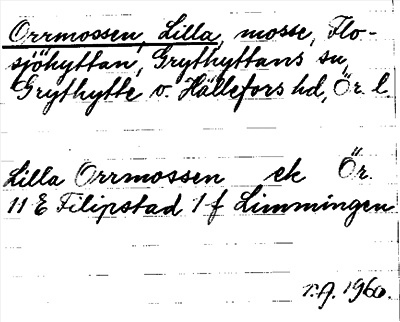 Orrmossen, Lilla, mosse, Flo-
sjöhyttan, Grythyttans sn,
Grythytte o. Hällefors hd, Ör. l.
Lilla Orrmossen ek Ör.
11 E Filipstad 1 f Limmingen
r.A. 1960.